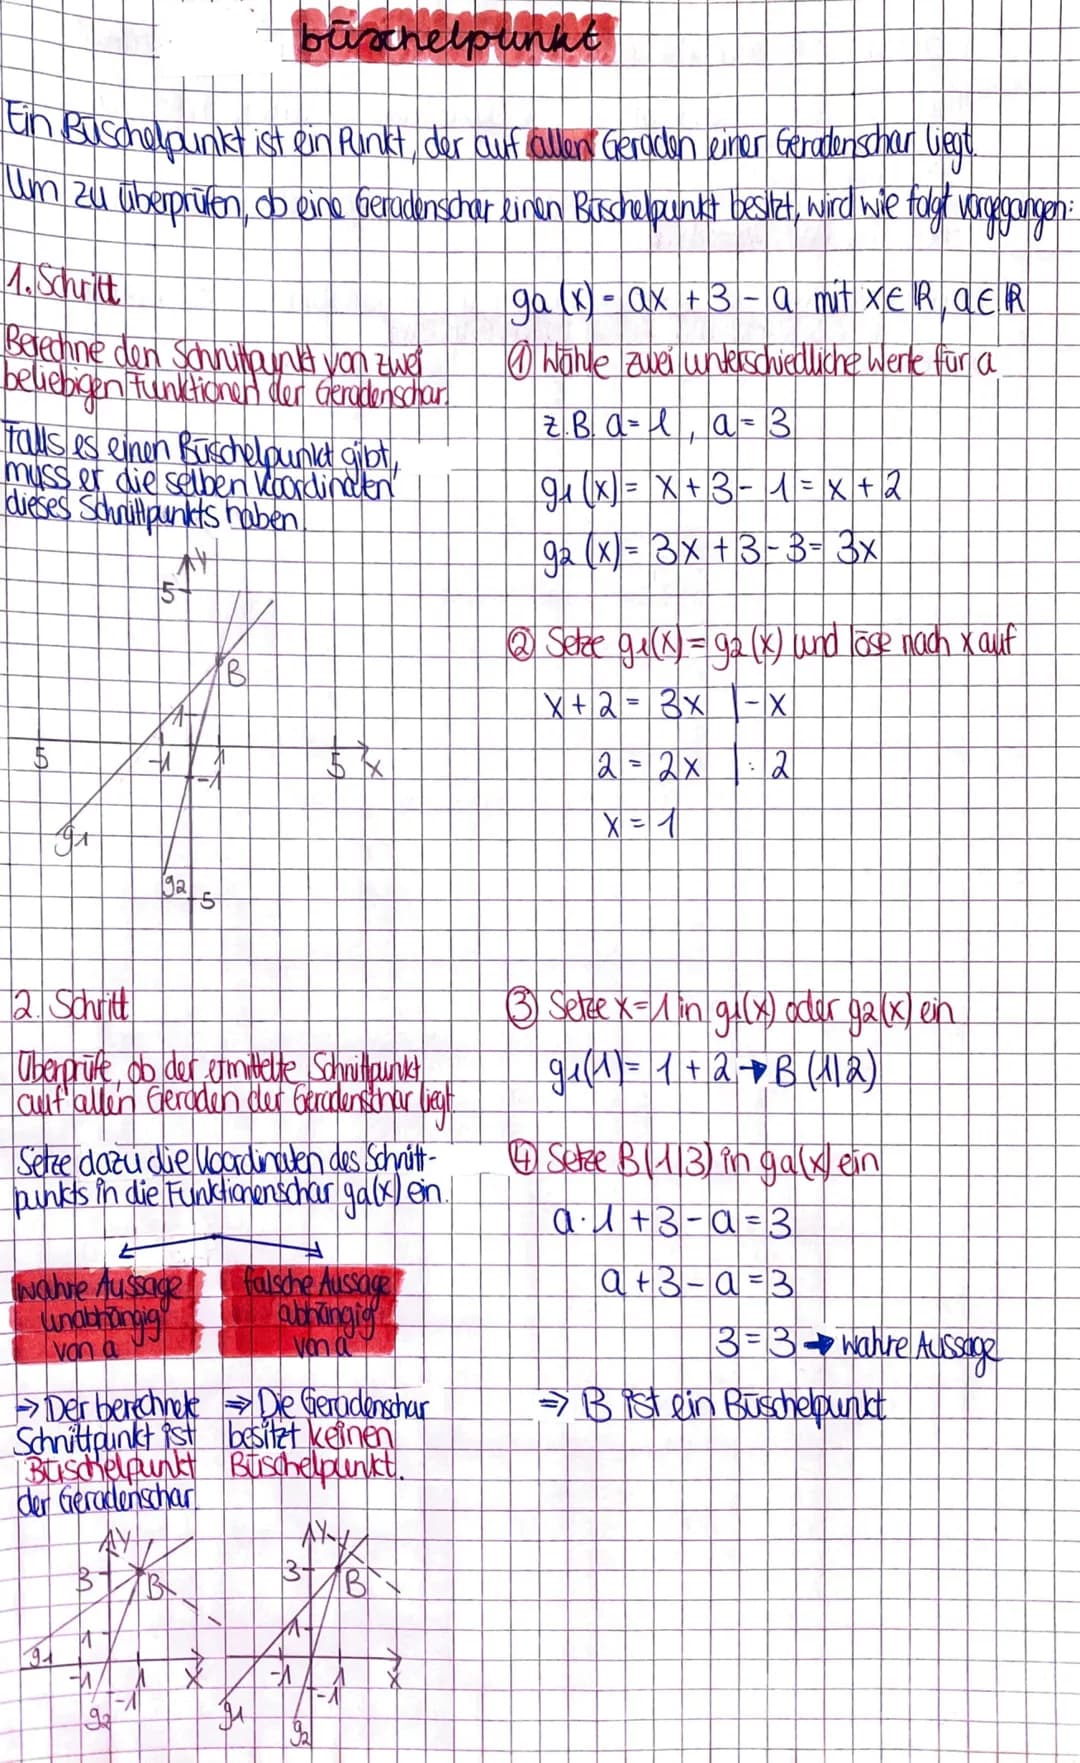 büschelpunkt
Ein Büschelpunkt ist ein Punkt, der auf allen Geraden einer Geradenschar liegt.
Um zu überprüfen, ob eine Geradenschar einen Büschelpunkt besitzt, wird wie folgt vorgegangen:
1. Schritt
Berechne den Schnittpunkt von zwei
beliebigen Funktionen der Geradenschar.
Falls es einen Büschelpunkt gibt,
muss er die selben Koordinaten
dieses Schnittpunkts haben.
y
5
B
1
5
-1
1
-1
5
x
g1
g2
-5
ga(x) = ax + 3 - a mit x∈ℝ, a∈ℝ
① Wähle zwei unterschiedliche Werte für a
z.B. a=1, a=3
g1(x) = x + 3 - 1 = x + 2
g2(x) = 3x + 3 - 3 = 3x
② Setze g1(x) = g2(x) und löse nach x auf
x + 2 = 3x |-x
2 = 2x |: 2
x = 1
2. Schritt
Überprüfe, ob der ermittelte Schnittpunkt
auf allen Geraden der Geradenschar liegt
Setze dazu die Koordinaten des Schnitt-
punkts in die Funktionenschar ga(x) ein.
wahre Aussage
unabhängig
von a
falsche Aussage
abhängig
von a
→ Der berechnete
Schnittpunkt ist
Büschelpunkt
der Geradenschar.
⇒ Die Geradenschar
besitzt keinen
Büschelpunkt.
y
3
B
1
g1
-1
1
x
-1
g2
y
3
B
1
-1
1
x
-1
g1
g2
③ Setze x=1 in g1(x) oder g2(x) ein
g1(1) = 1 + 2 → B (1|2)
④ Setze B(1|3) in ga(x) ein
a·1 + 3 - a = 3
a + 3 - a = 3
3 = 3 → wahre Aussage
⇒ B ist ein Büschelpunkt